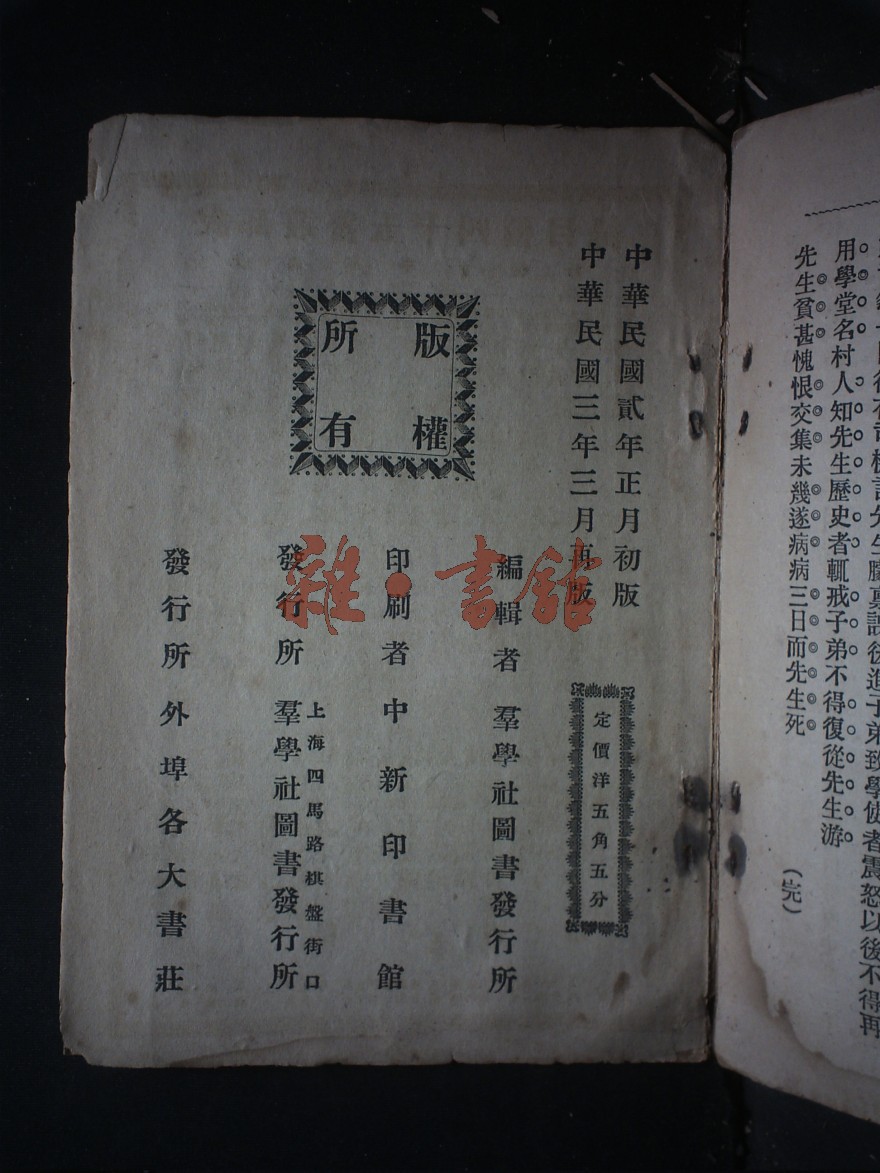 用學堂名村人知先生歷史者輒戒子弟不得復從先生游
先生貧甚愧恨交集未幾遂病病三日而先生死
(完)
中華民國貳年正月初版
中華民國三年三月再版
定價洋五角五分
版權所有
編輯者 羣學社圖書發行所
印刷者 中新印書館
上海四馬路棋盤街口
發行所 羣學社圖書發行所
發行所 外埠各大書莊
雜·書館